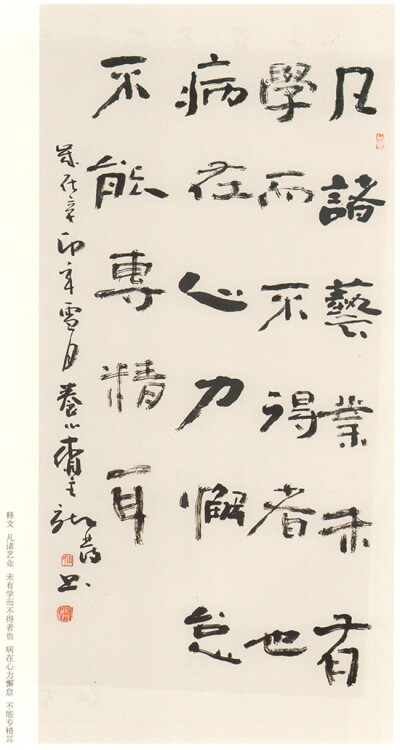 凡諸藝業未有
學而不得者也
病在心力懈怠
不能專精耳
歲在辛卯年雪月養心齋主書
释文 凡诸艺业 未有学而不得者也 病在心力懈怠 不能专精耳